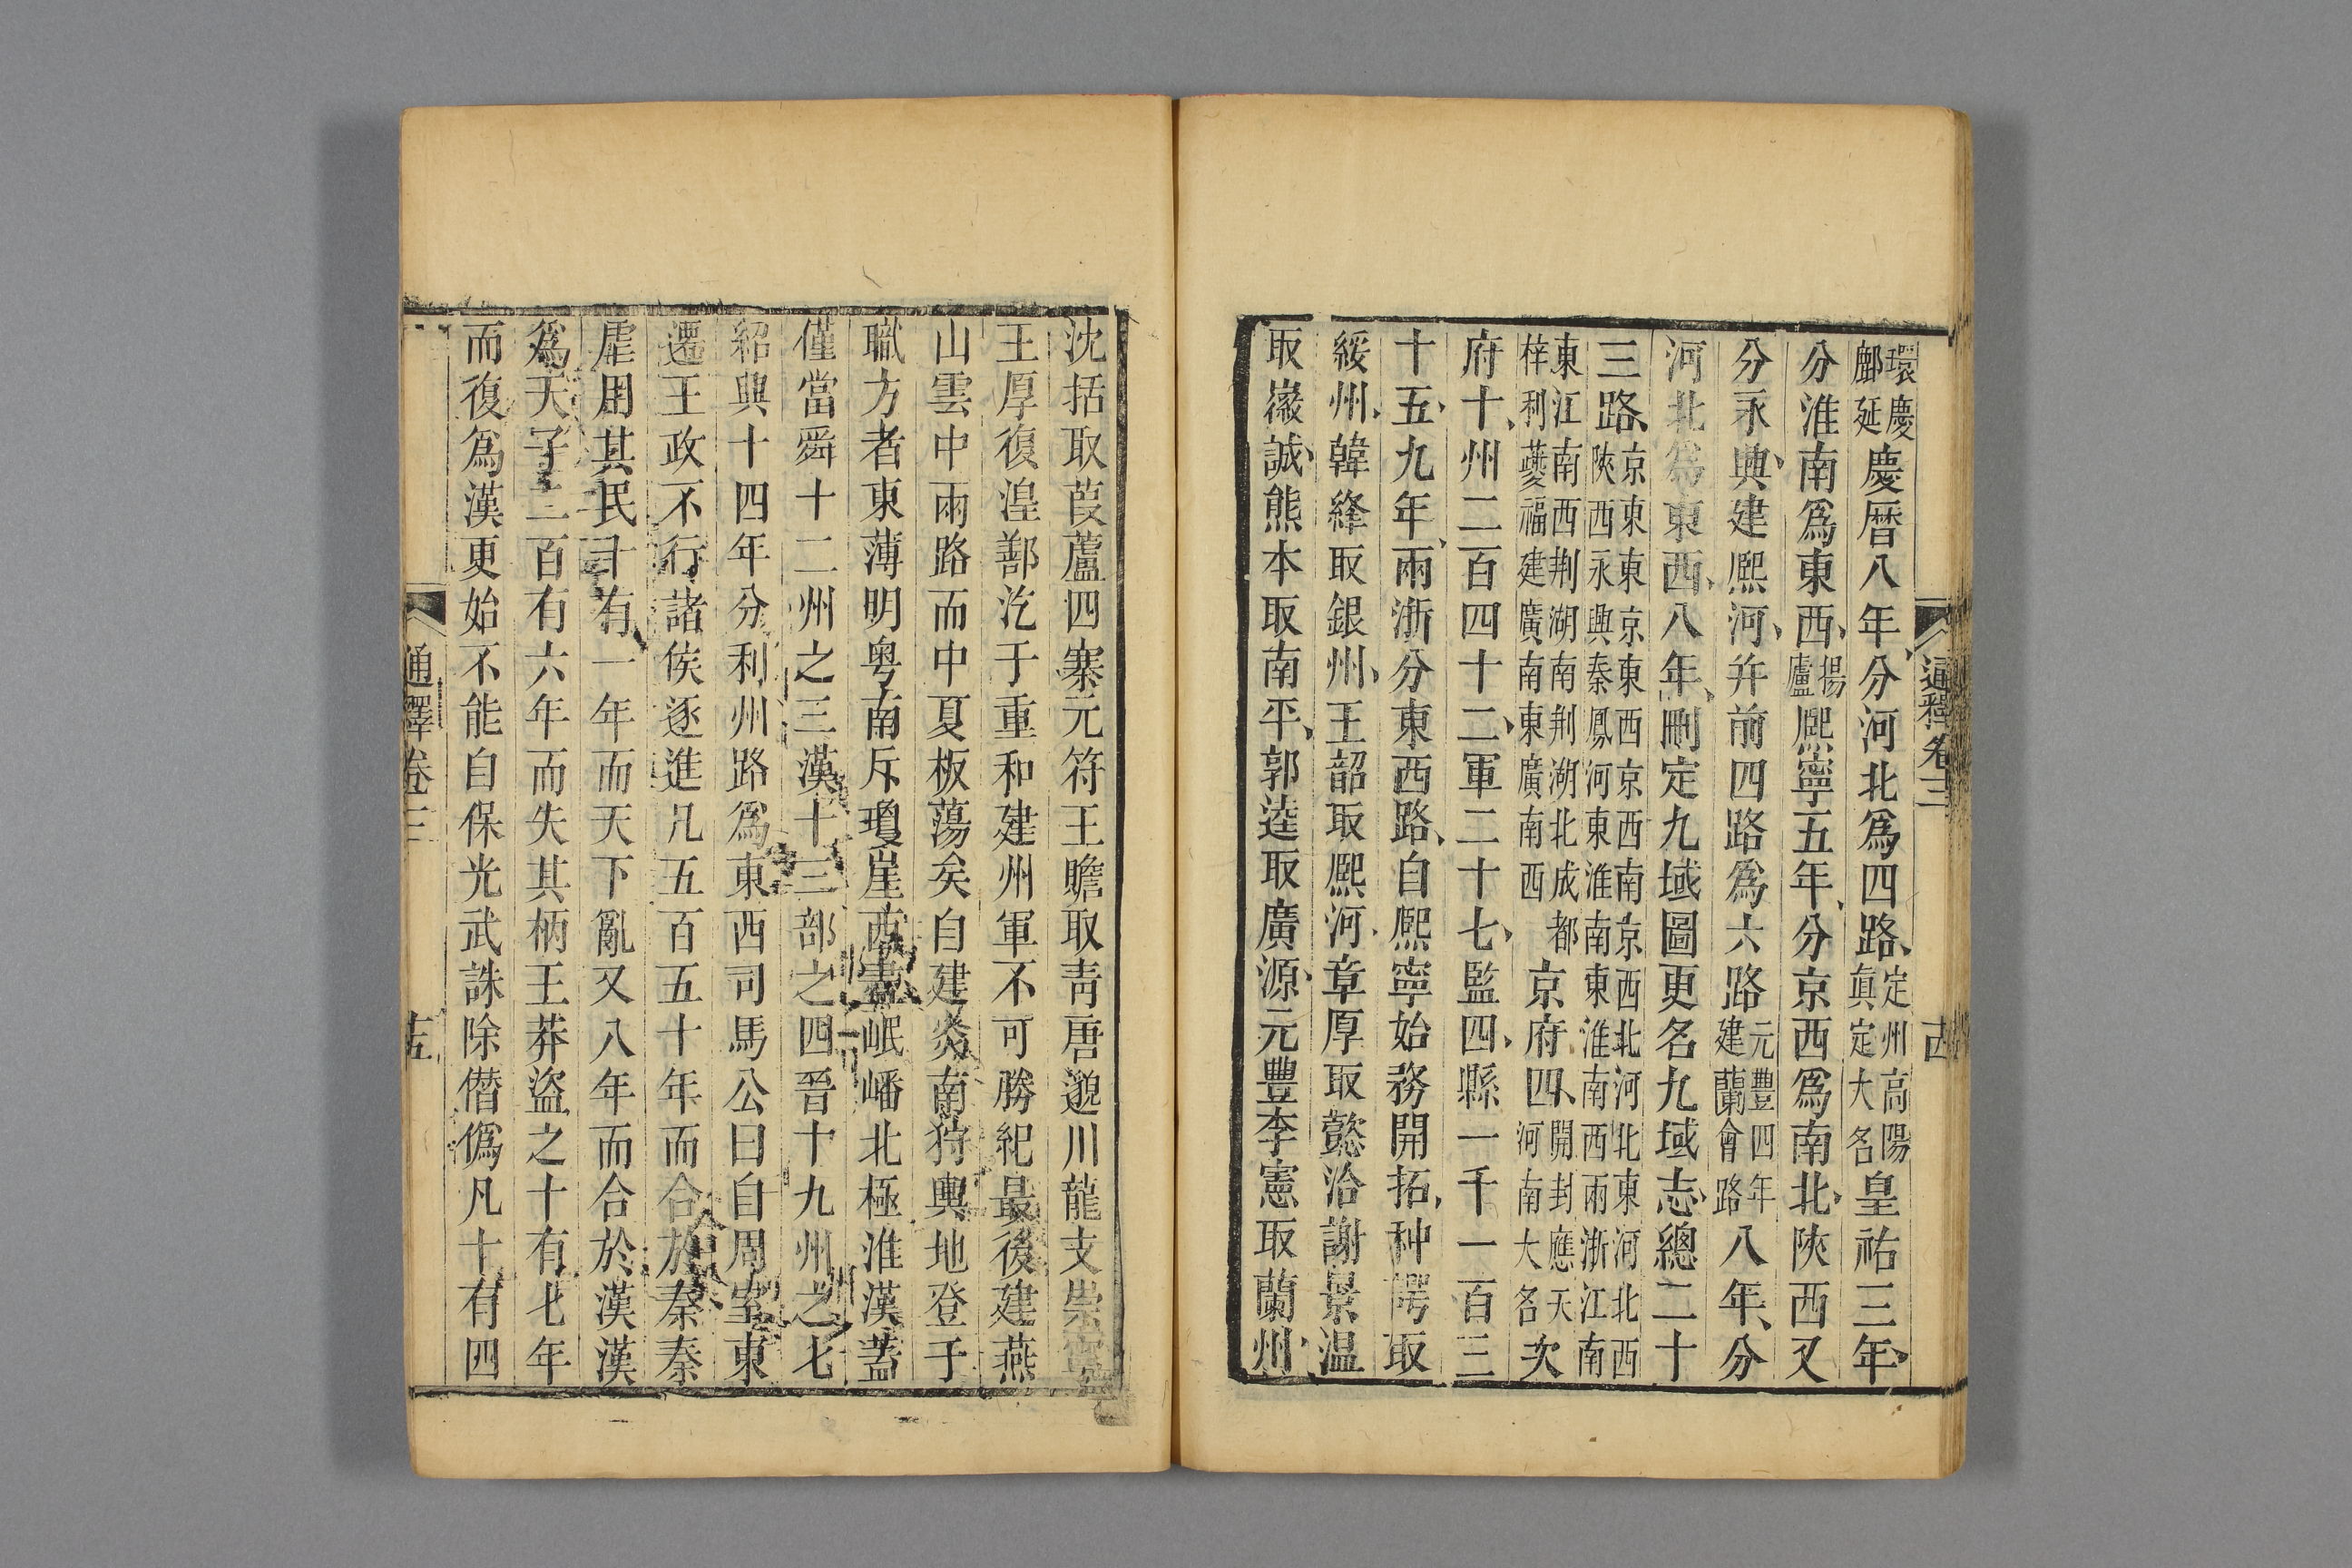 環慶鄜延慶曆八年分河北爲四路定州高陽眞定大名皇祐三年
分淮南爲東西揚廬熈寧五年分京西爲南北陝西又
分永興建熈河幷前四路爲六路元豐四年建蘭會路八年分
河北爲東西八年刪定九域圖更名九域志總二十
三路京東東京東西京西南京西北河北東河北西陜西永興秦鳳河東淮南東淮南西兩浙江南
東江南西荆湖南荆湖北成都梓利夔福建廣南東廣南西京府四開封應天河南大名次
府十州二百四十二軍二十七監四縣一千一百三
十五九年兩浙分東西路自熈寧始務開拓种諤取
綏州韓絳取銀州王韶取熈河章厚取懿洽謝景温
取徽誠熊本取南平郭逵取廣源元豐李憲取蘭州
通釋卷三
古
沈括取葭蘆四寨元符王瞻取青唐邈川龍支崇寧
王厚復湟鄯汔于重和建州軍不可勝紀最後建燕
山雲中兩路而中夏板蕩矣自建炎南狩輿地登于
職方者東薄明粤南斥瓊崖西岷嶓北極淮漢蓋
僅當舜十二州之三漢十三部之四晉十九州之七
紹興十四年分利州路爲東西司馬公曰自周室東
遷王政不行諸侯逐進凡五百五十年而合於秦秦
虐用其民十有一年而天下亂又八年而合於漢漢
爲天子二百有六年而失其柄王莽盜之十有七年
而復爲漢更始不能自保光武誅除僭僞凡十有四
通釋卷三
五